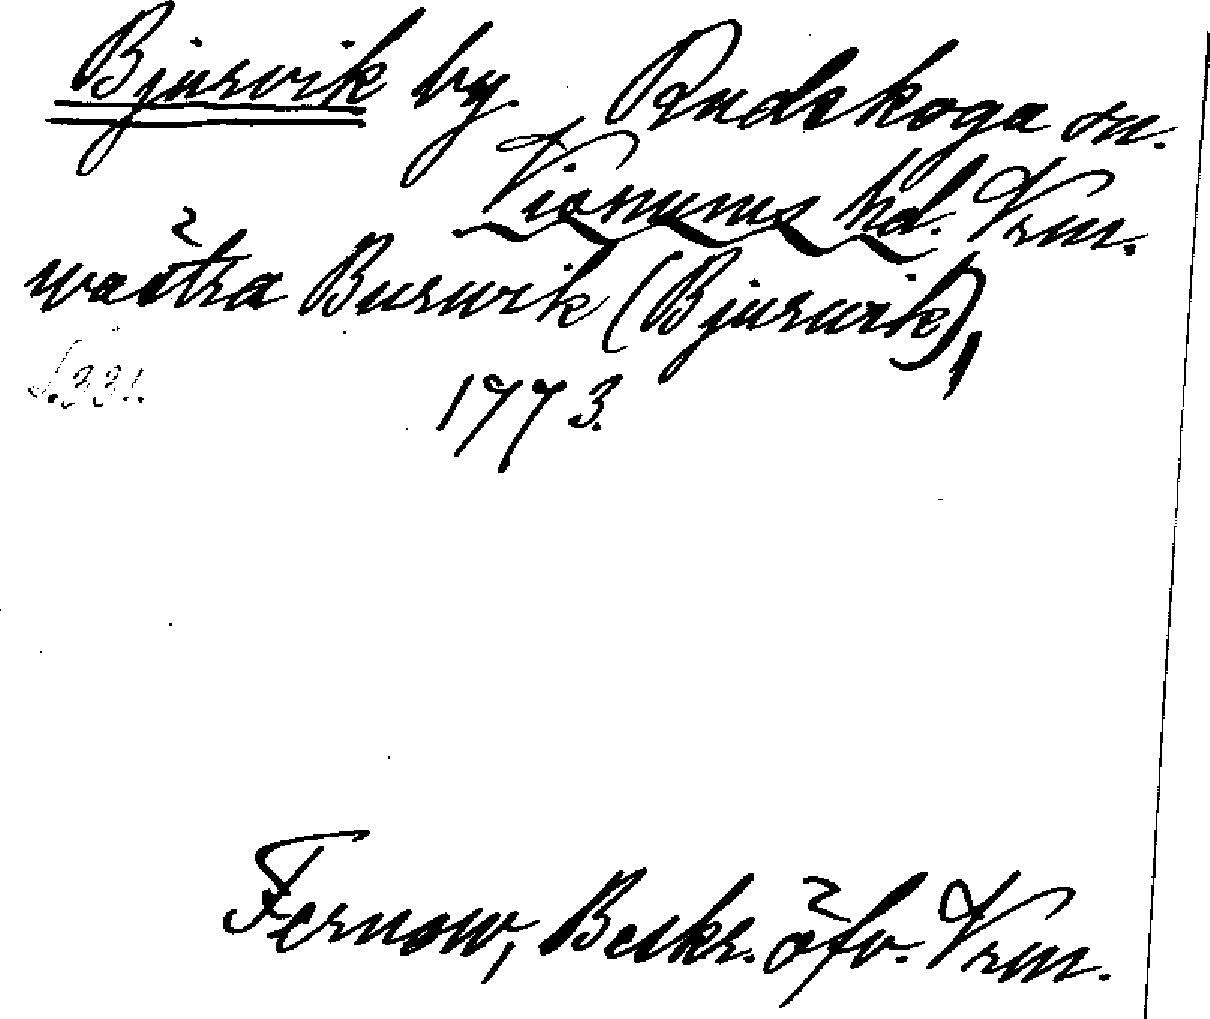 Bjurvik by. Rudskoga sn.
Visnums hd. Vrm.
wästra Burwik (Bjurwik),
s. 331.
1773.
Fernow, Beskr. öfv. Vrm.